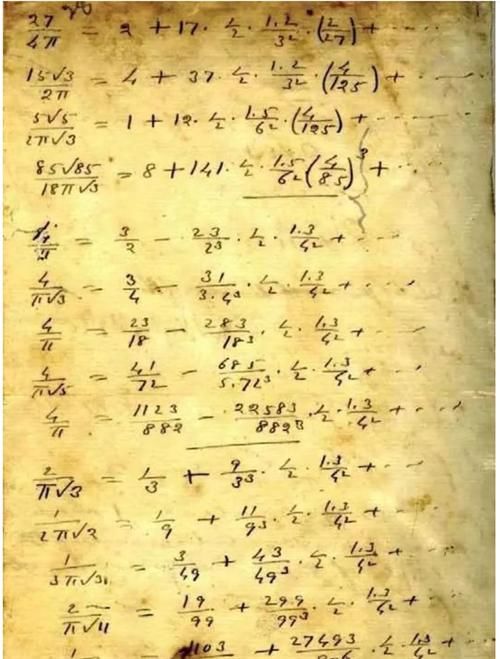 27/4π = 2 + 17 · 1/2 · 1.2/3² · (2/27) + ....
15√3/2π = 4 + 37 · 1/2 · 1.2/3² · (4/125) + ....
5√5/2π√3 = 1 + 12 · 1/2 · 1.5/6² · (4/125) + ....
85√85/18π√3 = 8 + 141 · 1/2 · 1.5/6² (4/85)³ + ...
4/π = 3/2 − 23/2³ · 1/2 · 1.3/4² + ...
4/π√3 = 3/4 − 31/3.4³ · 1/2 · 1.3/4² + ...
4/π = 23/18 − 283/18³ · 1/2 · 1.3/4² + ...
4/π√5 = 41/72 − 685/5.72³ · 1/2 · 1.3/4² + ...
4/π = 1123/882 − 22583/882³ · 1/2 · 1.3/4² + ...
2/π√3 = 1/3 + 9/3³ · 1/2 · 1.3/4² + ...
1/2π√2 = 1/9 + 11/9³ · 1/2 · 1.3/4² + ...
1/3π√3 = 3/49 + 43/49³ · 1/2 · 1.3/4² + ...
2/π√11 = 19/99 + 299/99³ · 1/2 · 1.3/4² + ...
1103 + 27493 · 1/2 · 1.3/4² + ...